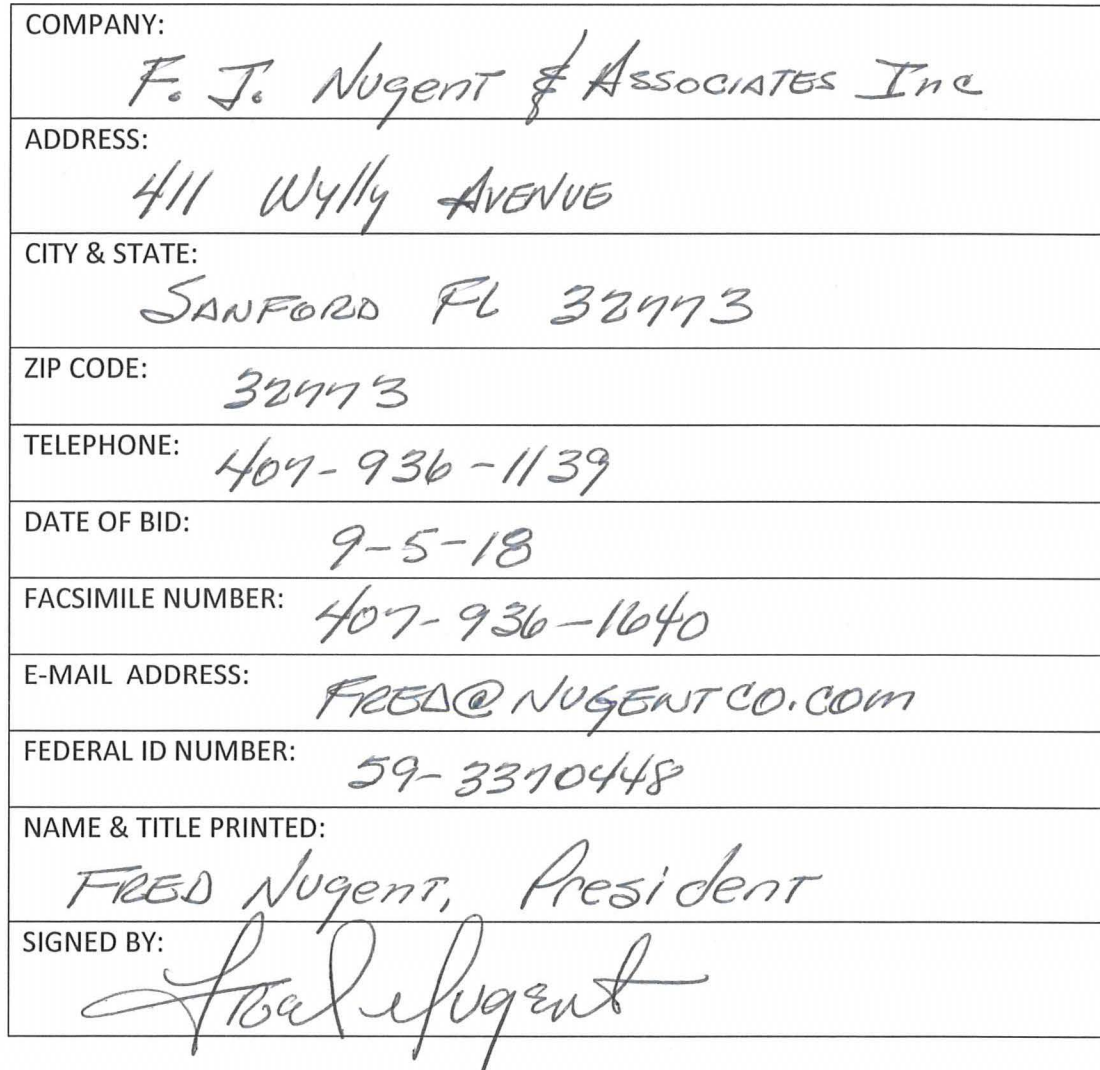 COMPANY:
F. J. Nugent & Associates Inc
ADDRESS:
411 Wylly Avenue
CITY & STATE:
Sanford FL 32773
ZIP CODE:
32773
TELEPHONE:
407-936-1139
DATE OF BID:
9-5-18
FACSIMILE NUMBER:
407-936-1640
E-MAIL ADDRESS:
FRED@NUGENTCO.COM
FEDERAL ID NUMBER:
59-3370448
NAME & TITLE PRINTED:
FRED Nugent, President
SIGNED BY:
Fred Nugent